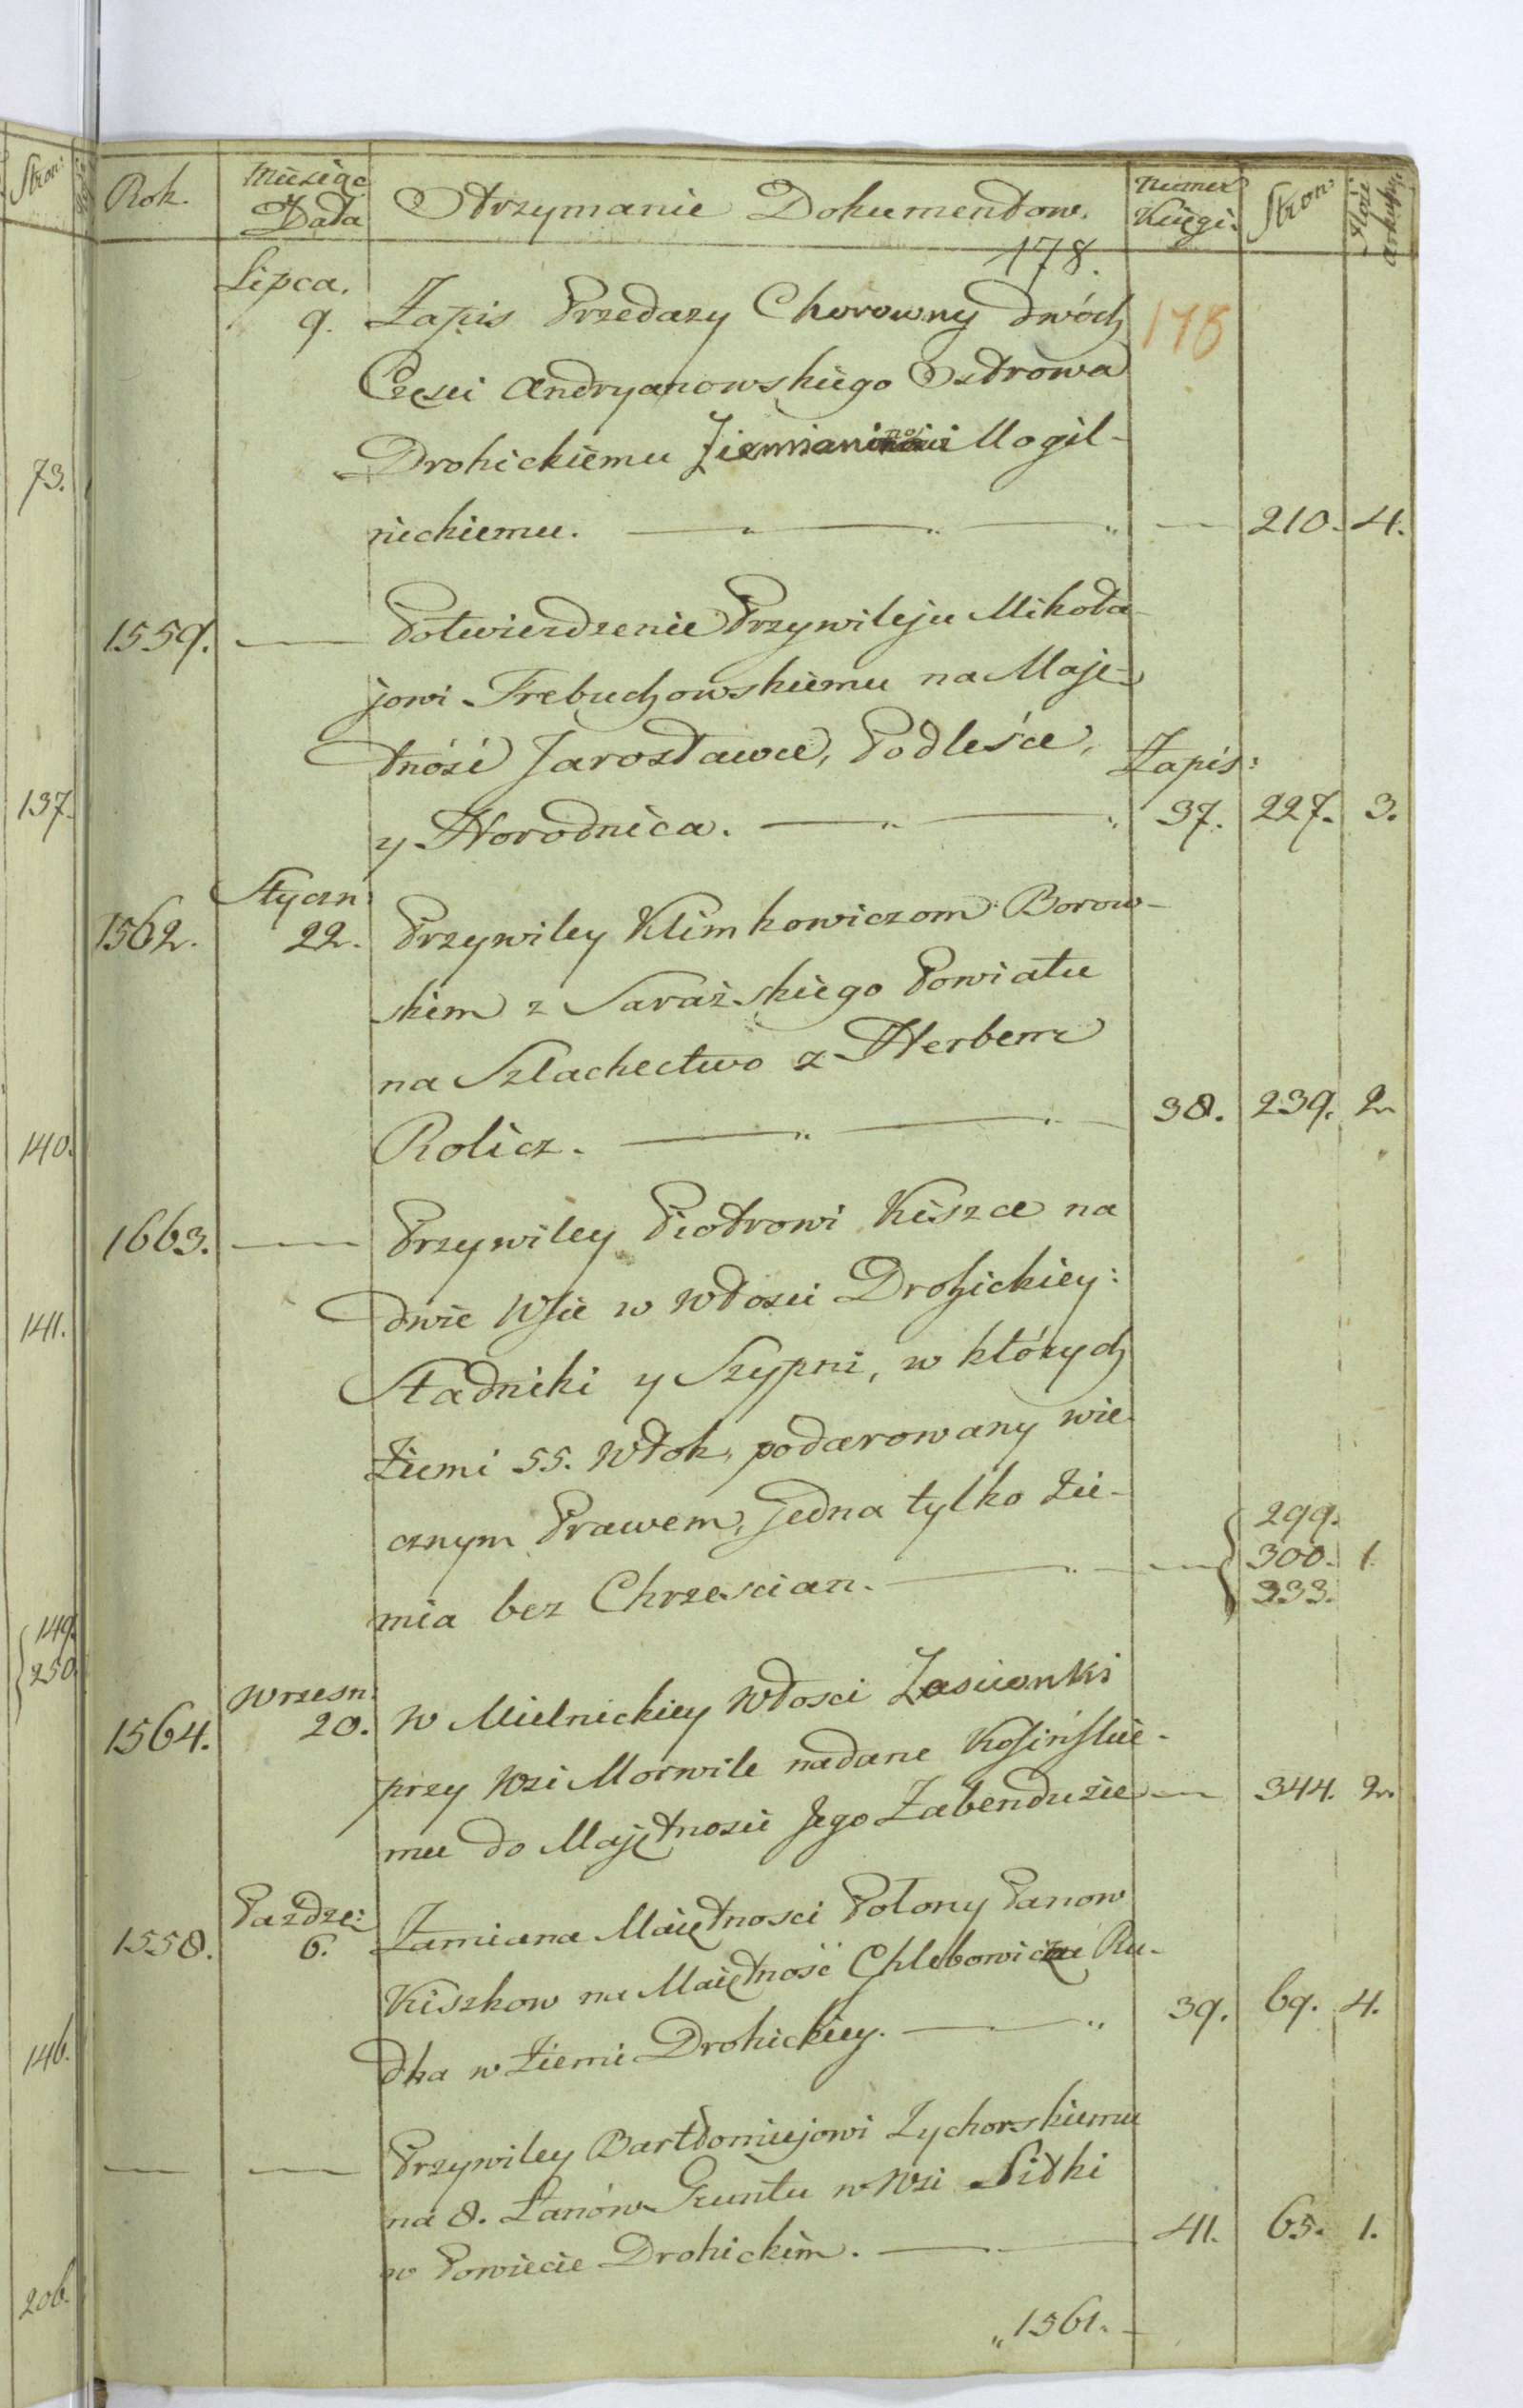 Stron:
Rok.
Miesiąc Data
Otrzymanie Dokumentow.
Numer Księgi.
Stron:
Ilość arkuszy.
178.
178
Lipca.
9. Zapis Przedazy Chorowny dwóch
Części Andryanowskiego Ostrowa
Drohickiemu Ziemianinowi Mogil-
nickiemu. — — — 210. 4.
1559. — Potwierdzenie Przywileju Mikoła-
jowi Trebuchowskiemu na Maję-
tność Jarosławce, Podleśce, Zapis:
y Horodnica. — — 37. 227. 3.
Styczn:
1562. 22. Przywiley Klimkowiczom Borow-
skim z Saraźskiego Powiatu
na Szlachectwo z Herbem
Rolicz. — — 38. 239. 2.
1663. — Przywiley Piotrowi Kiszce na
dwie Wsie w Włosci Drohickiey:
Stadniki y Szypni, w których
Ziemi 55. Włok, podarowany wie-
cznym Prawem, jedna tylko Zie-
mia bez Chrzescian. — — 299. 300. 333. 1.
Wrzesn:
1564. 20. W Mielnickiey Włosci Zascionki
przy Wsi Morwile nadane Kosińskie-
mu do Majętnosci Jego Zabenduzie — 344. 2.
Pazdze:
1558. 6. Zamiana Maiętnosci Połony Panow
Kiszkow na Maiętność Chlebowicza Ru-
dka w Ziemi Drohickiey. — 39. 69. 4.
— — Przywiley Bartłomiejowi Zychorskiemu
na 8. Łanów Gruntu w Wsi Sidki
w Powiecie Drohickim. — 41. 65. 1.
„1561.
73.
137.
140.
141.
149.
250.
146.
206.